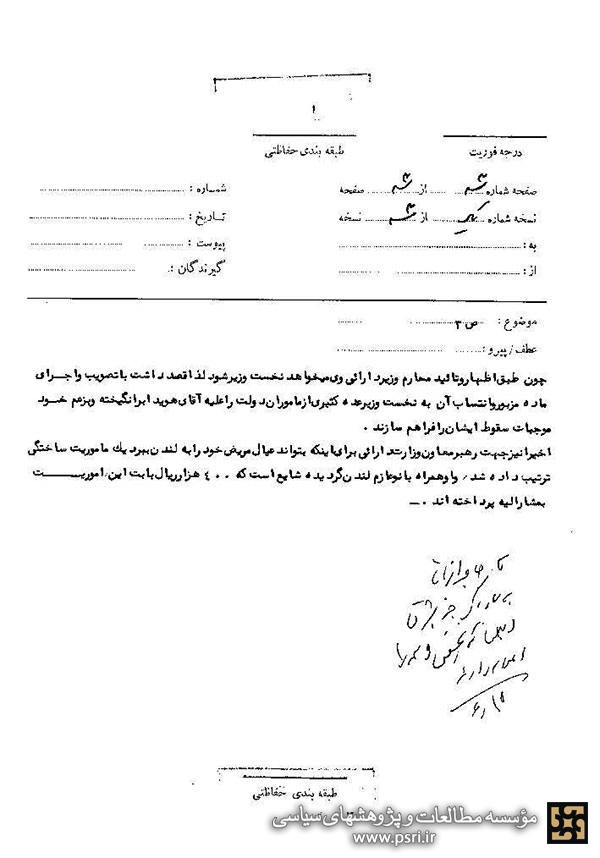 ۱
درجه فوریت
طبقه بندی حفاظتی
صفحه شماره ۳ از ۳ صفحه
شماره :
نسخه شماره یک از ۳ نسخه
تاریخ :
به :
پیوست :
از :
گیرندگان :
موضوع : ص ۳
عطف / پیرو :
چون طبق اظهار و تائید محارم وزیر دارائی وی میخواهد نخست وزیر شود لذا قصد داشت با تصویب و اجرای
ماده مزبور و انتساب آن به نخست وزیر عده کثیری از ماموران دولت را علیه آقای هویدا برانگیخته و بزعم خود
موجبات سقوط ایشان را فراهم سازند .
اخیرا نیز جهت رهبر معاون وزارت دارائی برای اینکه بتواند عیال مریض خود را به لندن ببرد یک ماموریت ساختگی
ترتیب داده شد و او همراه بانو عازم لندن گردیده شایع است که ۴۰۰ هزار ریال بابت این ماموریت
بمشارالیه پرداخته اند .
طبقه بندی حفاظتی
مؤسسه مطالعات و پژوهشهای سیاسی
www.psri.ir